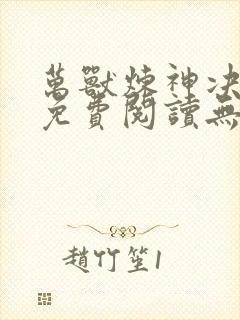 萬獸煉神決
免費閱讀無
趙竹笙1